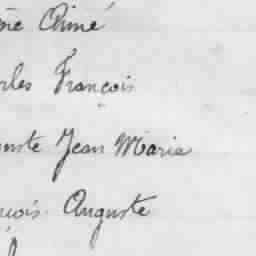 Aimé
rles François
uste Jean Marie
nçois Auguste